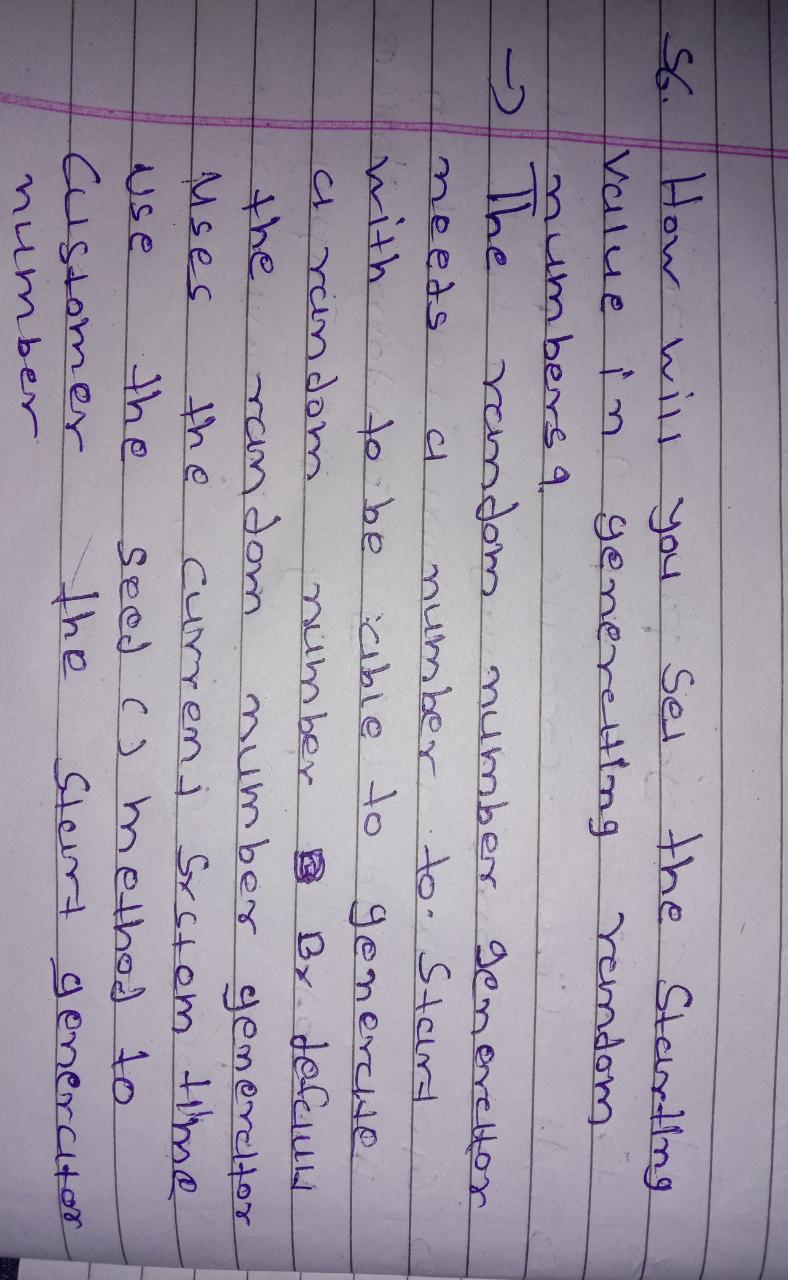 56. How will you set the Starting
value in generating random
numbers ?
→ The random number generator
needs a number to start
with to be able to generate
a random number By default
the random number generator
uses the current System time
use the seed () method to
Customer the Start generator
number